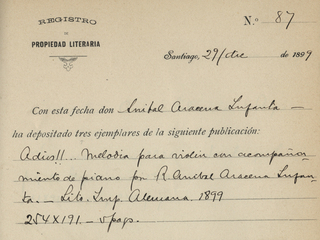 REGISTRO
DE
PROPIEDAD LITERARIA
N.º 87
Santiago, 29/dre de 1899
Con esta fecha don Anibal Aracena Infanta —
ha depositado tres ejemplares de la siguiente publicación:
Adios!!... Melodia para violin con acompaña-
miento de piano por R. Anibal Aracena Infan-
ta. — Lito. Imp. Alemana. 1899
254X191. — 5 pags.